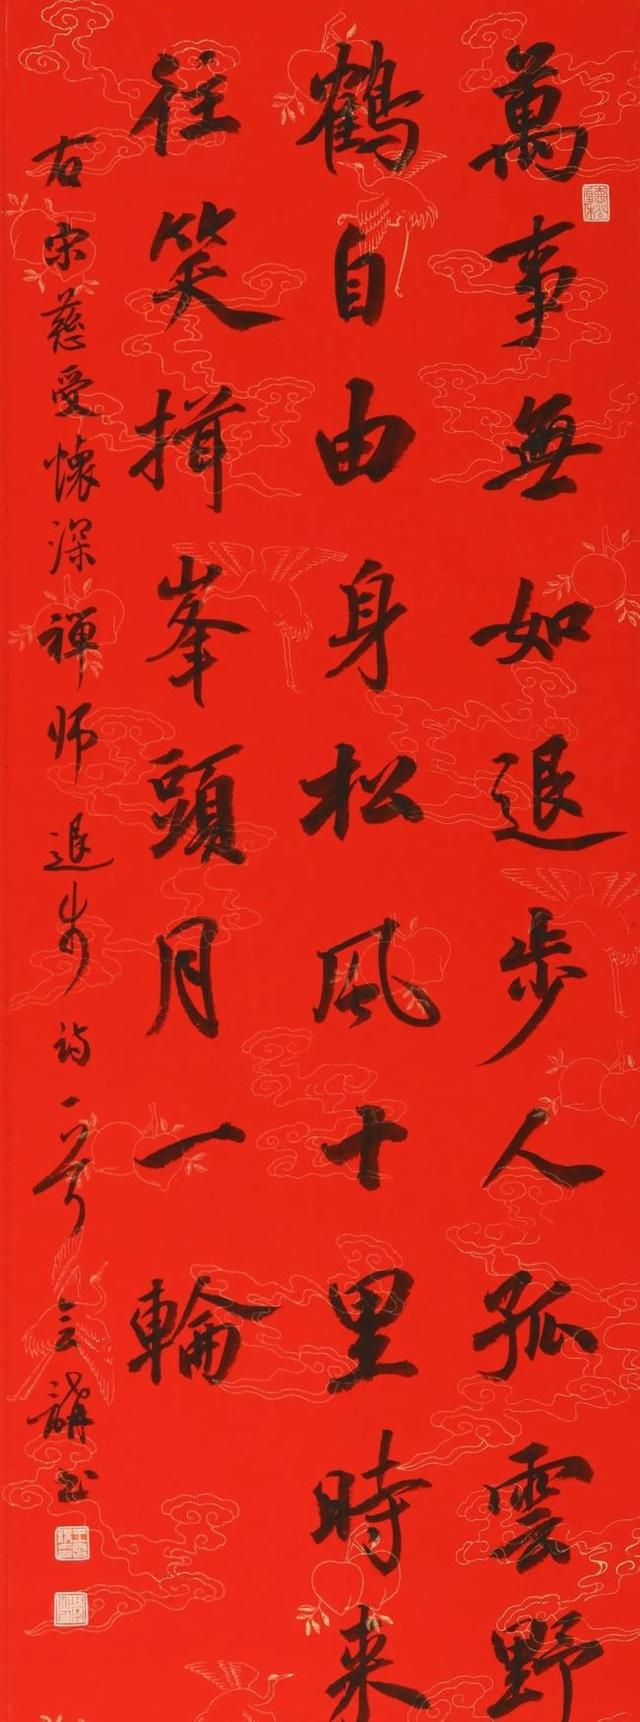 萬事無如退步人孤雲野
鶴自由身松風十里時来
往笑揖峯頭月一輪
右宋慈受懷深禪师退步诗一首